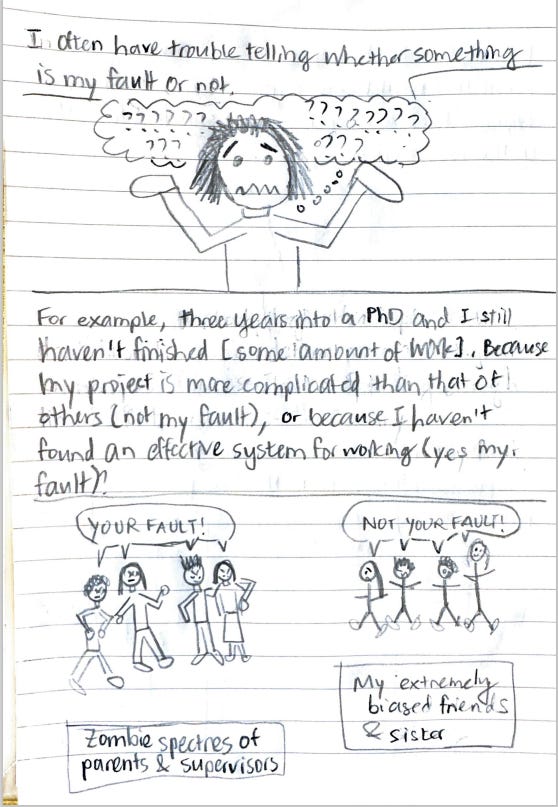 I often have trouble telling whether something
is my fault or not.
? ? ? ? ? ?
? ? ?
? ? ? ? ? ? ? ?
? ? ?
For example, three years into a PhD and I still
haven't finished [some amount of work]. Because
my project is more complicated than that of
others (not my fault), or because I haven't
found an effective system for working (yes my
fault)?
YOUR FAULT!
NOT YOUR FAULT!
Zombie spectres of
parents & supervisors
My extremely
biased friends
& sister